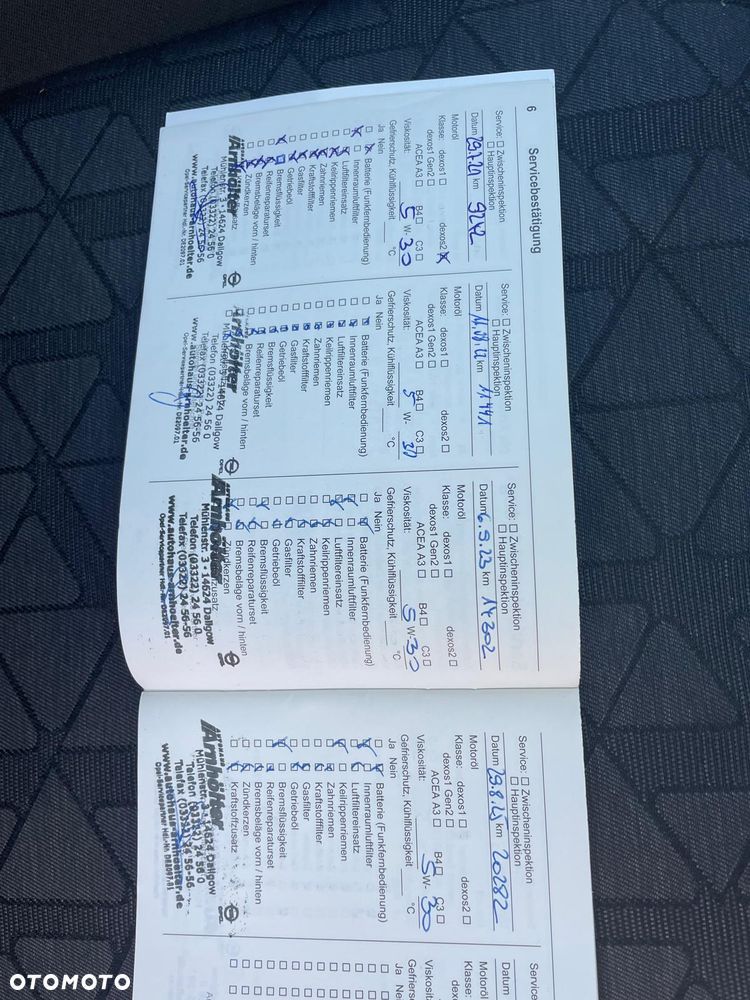 6 Servicebestätigung
Service: Zwischeninspektion
Hauptinspektion
Datum 29.7.20 km 9242
Motoröl
Klasse: dexos1 dexos2
dexos1 Gen2
ACEA A3 B4 C3
Viskosität: 5 W- 30
Gefrierschutz, Kühlflüssigkeit °C
Ja Nein
Batterie (Funkfernbedienung)
Innenraumluftfilter
Luftfiltereinsatz
Keilrippenriemen
Zahnriemen
Kraftstofffilter
Gasfilter
Getriebeöl
Bremsflüssigkeit
Reifenreparaturset
Bremsbeläge vorn / hinten
Zündkerzen
Arnhölter
Mühlenstr. 3 · 14624 Dallgow
Telefon (03322) 24 56 0
Telefax (03322) 24 56-56
www.autohaus-arnhoelter.de
OPEL
Service: Zwischeninspektion
Hauptinspektion
Datum km 11441
Motoröl
Klasse: dexos1 dexos2
dexos1 Gen2
ACEA A3 B4 C3
Viskosität: 5 W- 30
Gefrierschutz, Kühlflüssigkeit °C
Ja Nein
Batterie (Funkfernbedienung)
Innenraumluftfilter
Luftfiltereinsatz
Keilrippenriemen
Zahnriemen
Kraftstofffilter
Gasfilter
Getriebeöl
Bremsflüssigkeit
Reifenreparaturset
Bremsbeläge vorn / hinten
Arnhölter
Mühlenstr. 3 · 14624 Dallgow
Telefon (03322) 24 56 0
Telefax (03322) 24 56-56
www.autohaus-arnhoelter.de
OPEL
Service: Zwischeninspektion
Hauptinspektion
Datum 6.9.23 km 14302
Motoröl
Klasse: dexos1 dexos2
dexos1 Gen2
ACEA A3 B4 C3
Viskosität: 5 W- 30
Gefrierschutz, Kühlflüssigkeit °C
Ja Nein
Batterie (Funkfernbedienung)
Innenraumluftfilter
Luftfiltereinsatz
Keilrippenriemen
Zahnriemen
Kraftstofffilter
Gasfilter
Getriebeöl
Bremsflüssigkeit
Reifenreparaturset
Bremsbeläge vorn / hinten
Zündkerzen
Arnhölter
Mühlenstr. 3 · 14624 Dallgow
Telefon (03322) 24 56 0
Telefax (03322) 24 56-56
www.autohaus-arnhoelter.de
OPEL
Service: Zwischeninspektion
Hauptinspektion
Datum km 20282
Motoröl
Klasse: dexos1 dexos2
dexos1 Gen2
ACEA A3 B4 C3
Viskosität: 5 W- 30
Gefrierschutz, Kühlflüssigkeit °C
Ja Nein
Batterie (Funkfernbedienung)
Innenraumluftfilter
Luftfiltereinsatz
Keilrippenriemen
Zahnriemen
Kraftstofffilter
Gasfilter
Getriebeöl
Bremsflüssigkeit
Reifenreparaturset
Bremsbeläge vorn / hinten
Zündkerzen
Kraftstoffzusatz
Arnhölter
Mühlenstr. 3 · 14624 Dallgow
Telefon (03322) 24 56 0
Telefax (03322) 24 56-56
www.autohaus-arnhoelter.de
OPEL
Datum
Motoröl
Klasse:
Ja Nein
OTOMOTO